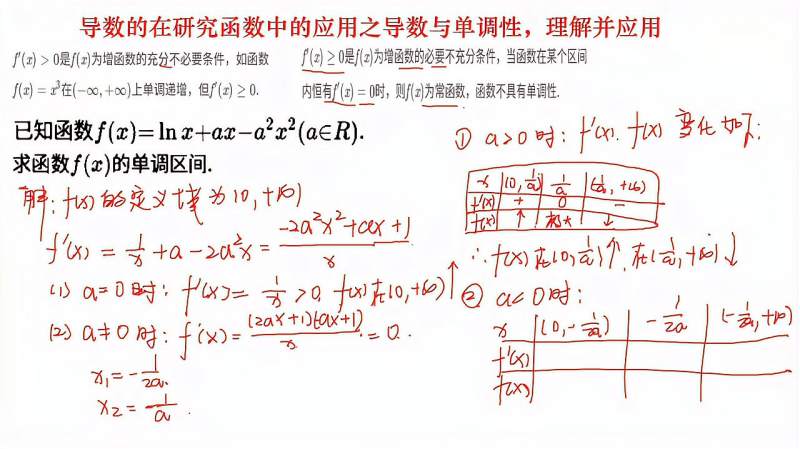 导数的在研究函数中的应用之导数与单调性，理解并应用
f'(x) > 0是f(x)为增函数的充分不必要条件，如函数
f(x) = x³在(-∞, +∞)上单调递增，但f'(x) ≥ 0.
f'(x) ≥ 0是f(x)为增函数的必要不充分条件，当函数在某个区间
内恒有f'(x) = 0时，则f(x)为常函数，函数不具有单调性.
已知函数f(x)=ln x+ax-a²x²(a∈R).
求函数f(x)的单调区间.
解: f(x)的定义域为(0, +∞)
f'(x) = 1/x + a - 2a²x = (-2a²x²+ax+1)/x
(1) a=0时: f'(x) = 1/x > 0 f(x)在(0,+∞)↑
(2) a≠0时: f'(x) = (2ax+1)(-ax+1)/x = 0.
x₁ = -1/2a.
x₂ = 1/a.
① a>0时: f'(x). f(x) 变化如下:
x (0, 1/a) 1/a (1/a, +∞)
f'(x) + 0 -
f(x) ↑ 极大 ↓
∴ f(x)在(0, 1/a)↑, 在(1/a, +∞)↓
② a<0时:
x (0, -1/2a) -1/2a (-1/2a, +∞)
f'(x)
f(x)